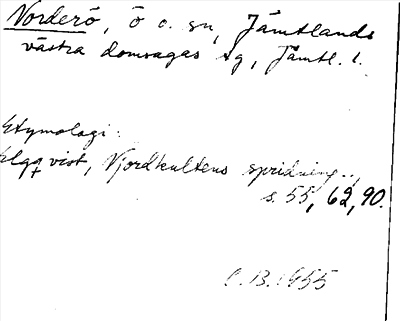 Norderö, ö o. sn, Jämtlands
västra domsagas tg, Jämtl. l.
Etymologi:
Elgqvist, Njordkultens spridning..,
s. 55, 62, 90.
C.B. 1955